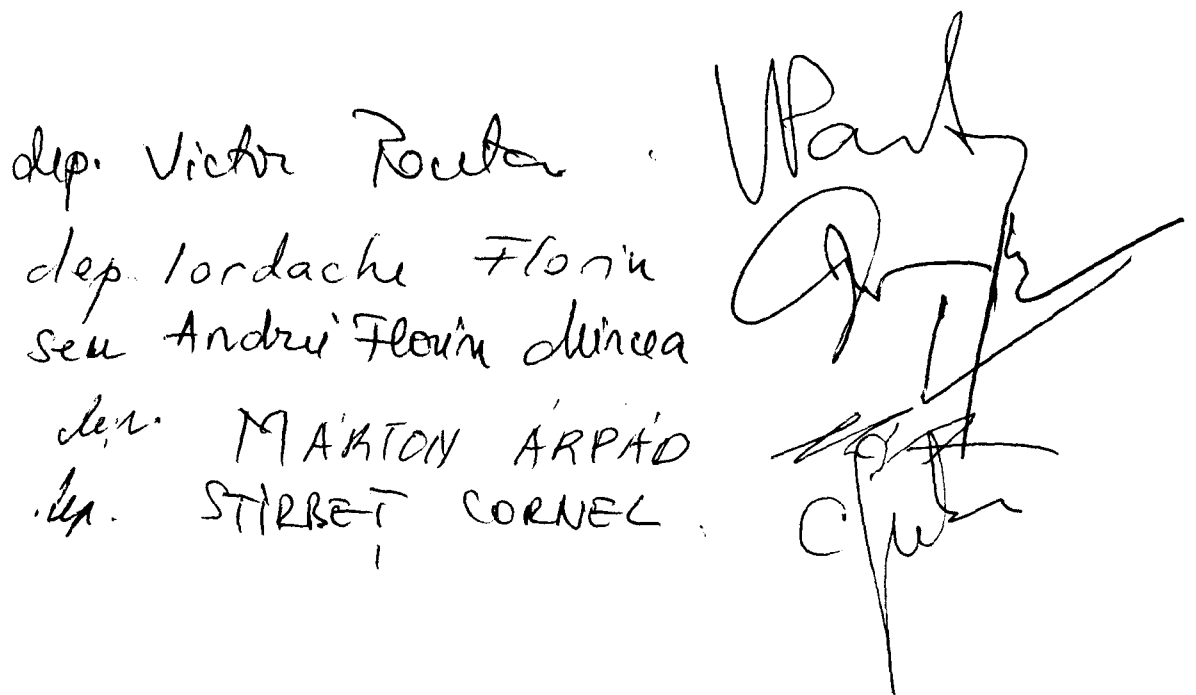 dep. Victor Ponta
dep. Iordache Florin
sen Andrei Florin Mircea
dep. MÁRTON ÁRPÁD
dep. STIRBEȚ CORNEL